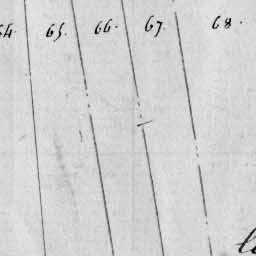 64. 65. 66. 67. 68.